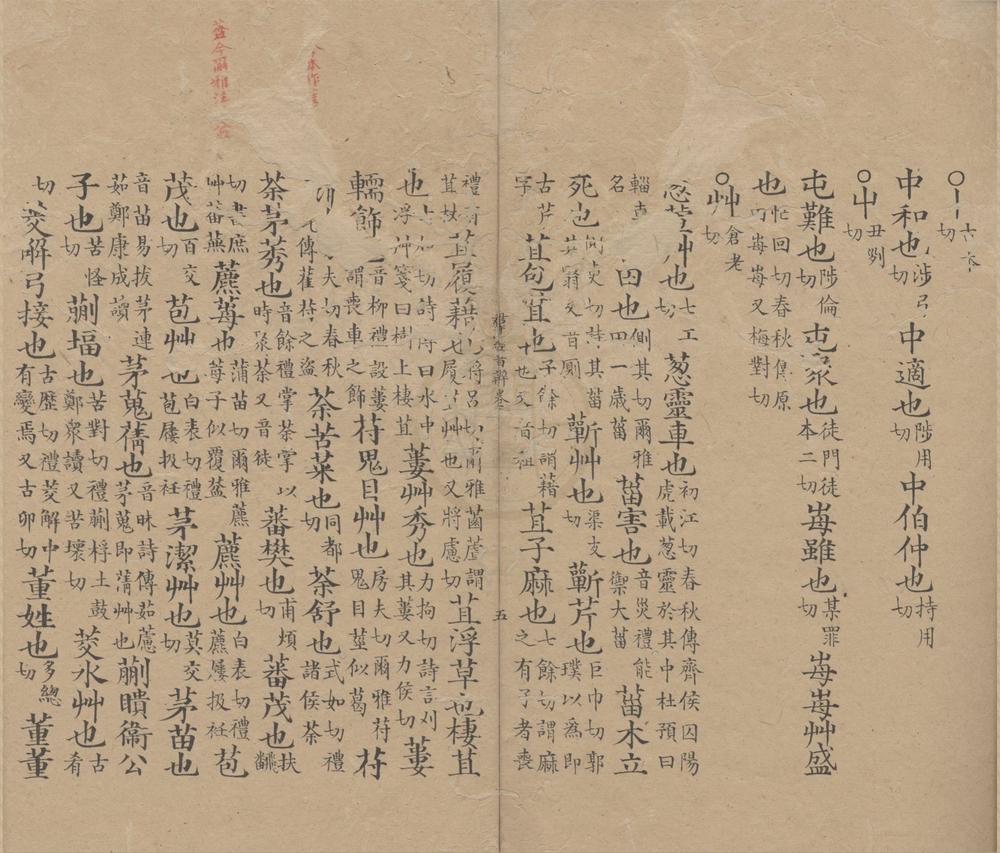 ○丨古本切
中和也陟弓切中適也陟用切中伯仲也持用切
○屮丑列切
屯難也陟倫切屯衆也徒門徒本二切每雖也某罪切每每艸盛
也忙回切春秋傳原田每每又梅對切
○艸倉老切
蔥艸也七工切蔥靈車也初江切春秋傳齊侯囚陽虎載蔥靈於其中杜預曰
輜車名 田也側其切爾雅田一歲菑菑害也音災禮能禦大菑菑木立
死也側吏切詩其菑其翳又音廁蘄艸也渠支切蘄芹也巨巾切郭璞以為即
古芹字苴包苴也子餘切謂藉也又音祖苴子麻也七餘切謂麻之有子者喪
禮有苴杖苴履藉也將呂切爾雅菌蘆謂履苴艸也又將慮切苴浮草也棲苴
也 切詩傳曰水中浮艸箋曰樹上棲苴蔞艸秀也力拘切詩言刈其蔞又力侯切蔞
轜飾也音柳禮設蔞謂喪車之飾苻鬼目艸也房夫切爾雅苻鬼目莖似葛苻
夫切春秋傳雚苻之盜荼苦菜也同都切荼舒也式如切禮諸侯荼
荼茅莠也音餘禮掌荼掌以時聚荼又音徒蕃樊也甫煩切蕃茂也扶
切書庶艸蕃蕪藨莓也蒲苗切爾雅藨莓子似覆盆藨艸也白表切禮藨屨扱衽苞
茂也百交切苞艸也白表切禮苞屨扱衽茅潔艸也莫交切茅苗也
音苗易拔茅連茹鄭康成讀茅蒐蒨也音昧詩傳茹藘茅蒐即蒨艸也蒯聵衞公
子也苦怪切蒯堛也苦對切禮蒯桴土鼓鄭衆讀又苦壞切茭水艸也古肴
切茭解弓接也古歷切禮茭解中有變焉又古卯切董姓也多總切董董
雅 音辨卷 五
今本作
蓋今爾雅注